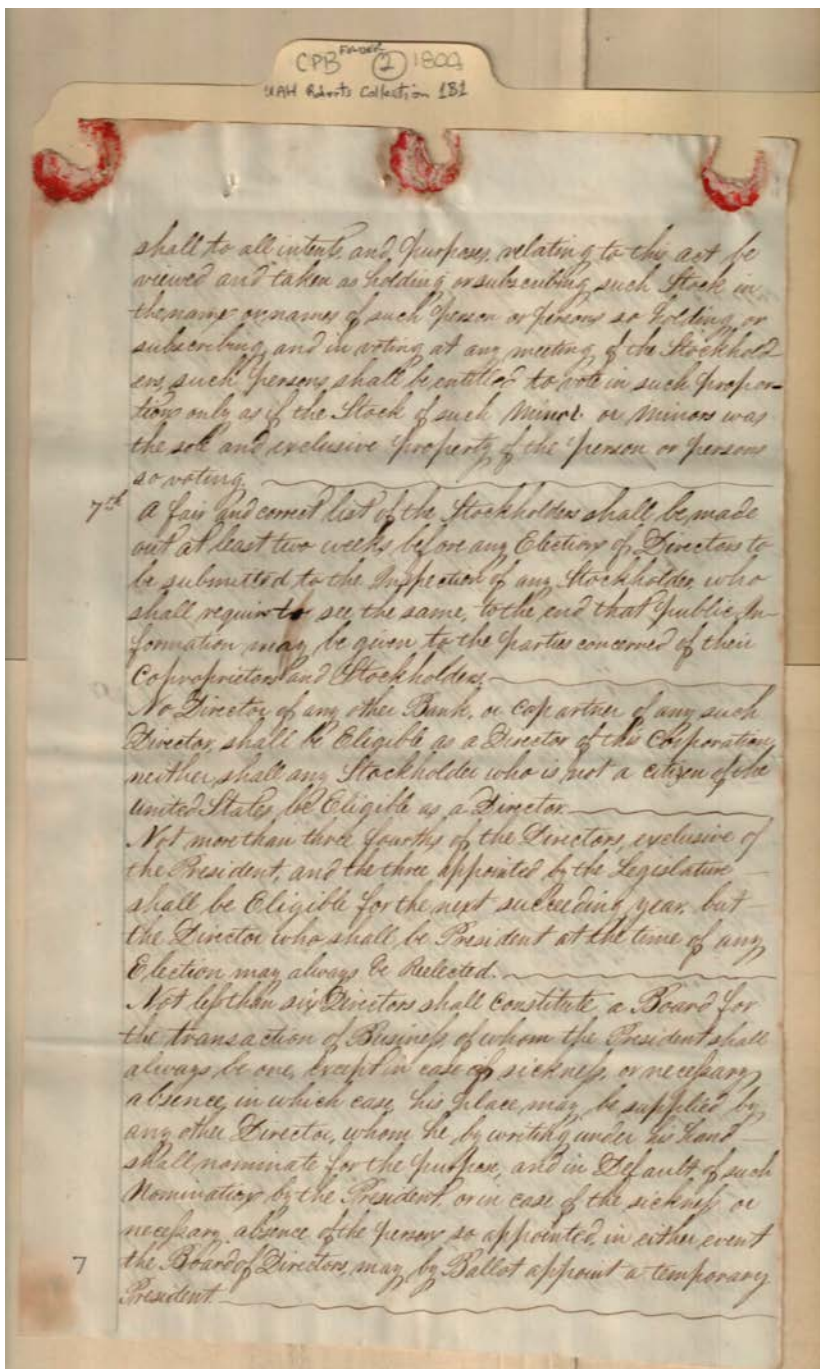 CPB FOLDER 2 1809
UAH Roberts Collection 1B1
shall to all intents and purposes, relating to this act be
viewed and taken as holding or subscribing such Stock in
the name or names of such person or persons so holding or
subscribing and in voting at any meeting of the Stockhold
ers, such persons shall be entitled to vote in such propor-
tions only as if the Stock of such Minor or Minors was
the sole and exclusive property of the person or persons
so voting.
7th A fair and correct list of the Stockholders shall be made
out at least two weeks before any Election of Directors to
be submitted to the Inspection of any Stockholder, who
shall require to see the same, to the end that public In-
formation may be given to the parties concerned of their
Coproprietors and Stockholders.
No Director of any other Bank, or Copartner of any such
Director, shall be Eligible as a Director of this Corporation,
neither shall any Stockholder who is not a citizen of the
United States, be Eligible as a Director.
Not more than three fourths of the Directors, exclusive of
the President, and the three appointed by the Legislature
shall be Eligible for the next succeeding year, but
the Director who shall be President at the time of any
Election may always be Reelected.
Not less than six Directors shall constitute a Board for
the transaction of Business, of whom the President shall
always be one, Except in case of sickness, or necessary
absence, in which case, his place may be supplied by
any other Director, whom he by writing under his hand
shall nominate for the purpose, and in Default of such
Nomination by the President, or in case of the sickness or
necessary absence of the person so appointed, in either event
7 the Board of Directors, may by Ballot appoint a temporary
President.